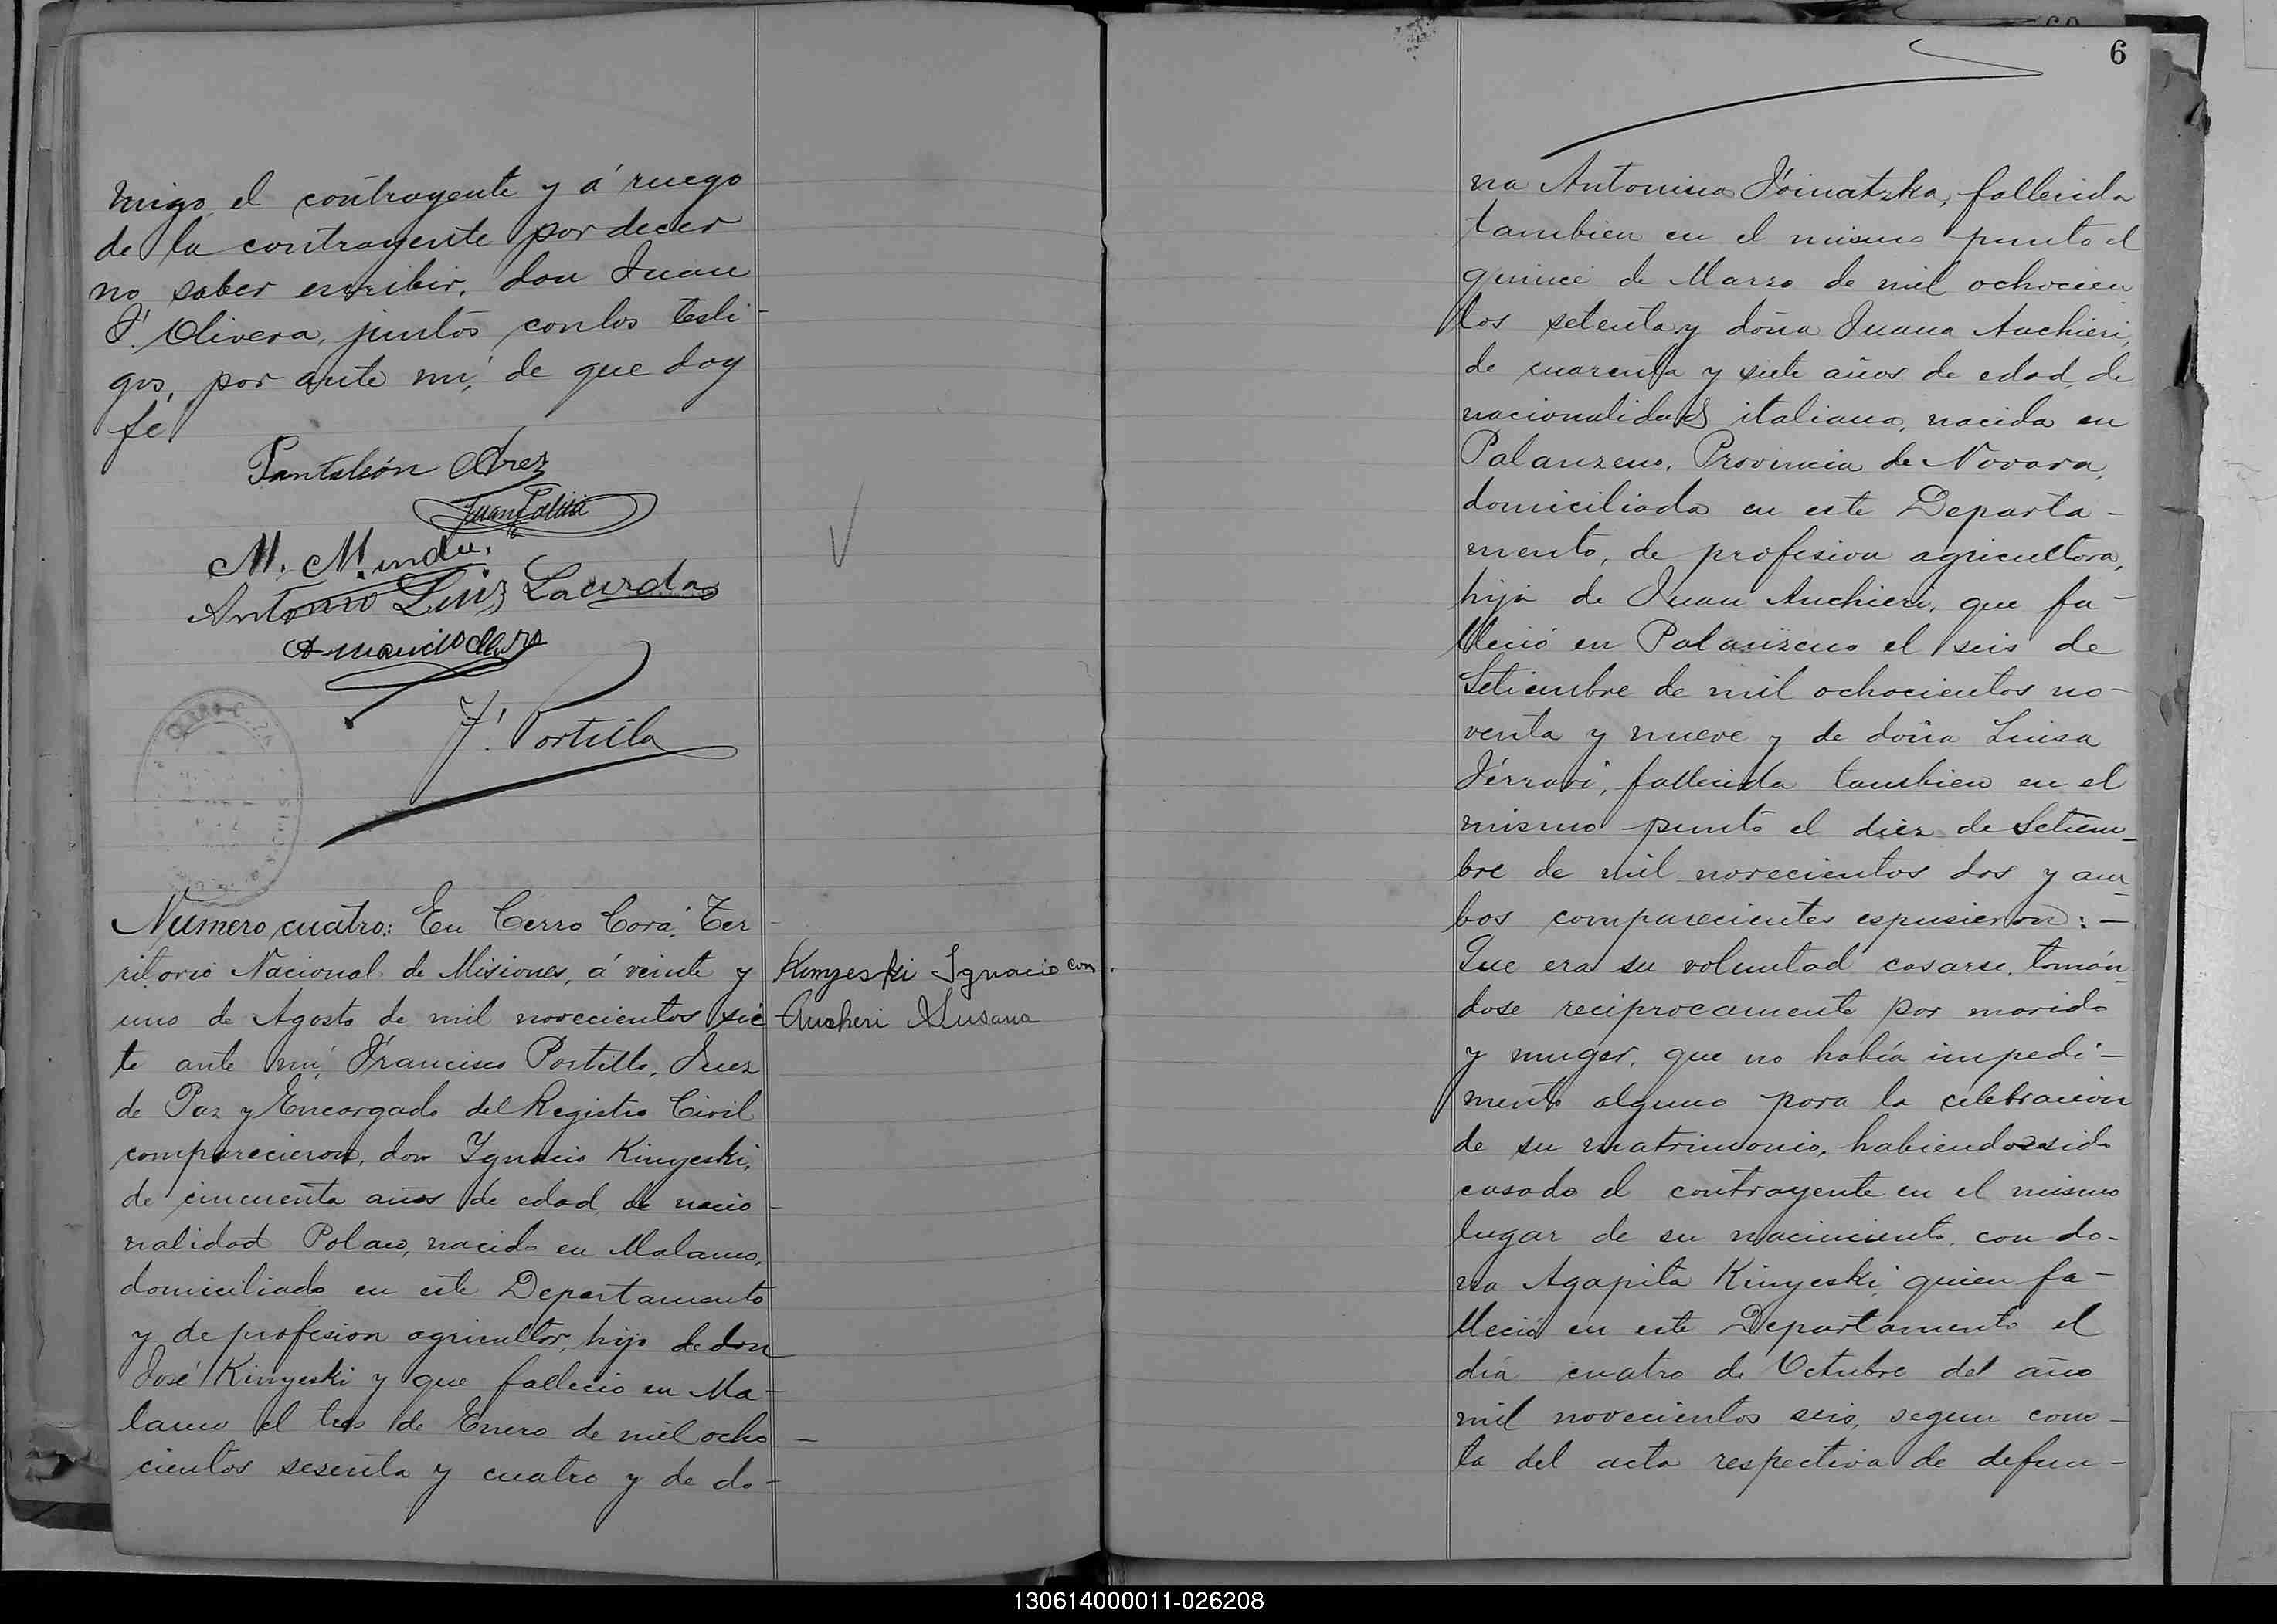 migo el contrayente y á ruego
de la contrayente por decir
no saber escribir, don Juan
F. Olivera, juntos con los testi-
gos, por ante mi, de que doy
fé
Pantaleón
M.
Antonio Luiz Lacerda
F. Portillo
Número cuatro: En Cerro Corá, Ter-
ritorio Nacional de Misiones, á veinte y
uno de Agosto de mil novecientos sie-
te ante mi, Francisco Portillo, Juez
de Paz y Encargado del Registro Civil
comparecieron, don Ygnacio Kinyeski,
de cincuenta años de edad, de nacio-
nalidad Polaco, nacido en Malamo,
domiciliado en este Departamento
y de profesion agricultor, hijo de don
José Kinyeski y que fallecio en Ma-
lamo el tres de Enero de mil ocho-
cientos sesenta y cuatro y de do-
Kinyeski Ignacio con
Aucheri Susana
6
na Antonina fallecida
tambien en el mismo punto el
quince de Marzo de mil ochocien
tos setenta y doña Juana Auchieri,
de cuarenta y siete años de edad, de
nacionalidad italiana, nacida en
Palanzeno, Provincia de Novara,
domiciliada en este Departa-
mento, de profesion agricultora,
hija de Juan Auchieri, que fa-
lleció en Palanzeno el seis de
Setiembre de mil ochocientos no-
venta y nueve y de doña Luisa
Ferrari, fallecida tambien en el
mismo punto el diez de Setiem-
bre de mil novecientos dos y am-
bos comparecientes espusieron: -
Que era su voluntad casarse, tomán-
dose reciprocamente por marido
y muger, que no había impedi-
mento alguno para la celebracion
de su matrimonio, habiendo sido
casado el contrayente en el mismo
lugar de su nacimiento, con do-
na Agapita Kinyeski quien fa-
lleció en este Departamento el
día cuatro de Octubre del año
mil novecientos seis, segun cons-
ta del acta respectiva de defun-
130614000011-026208